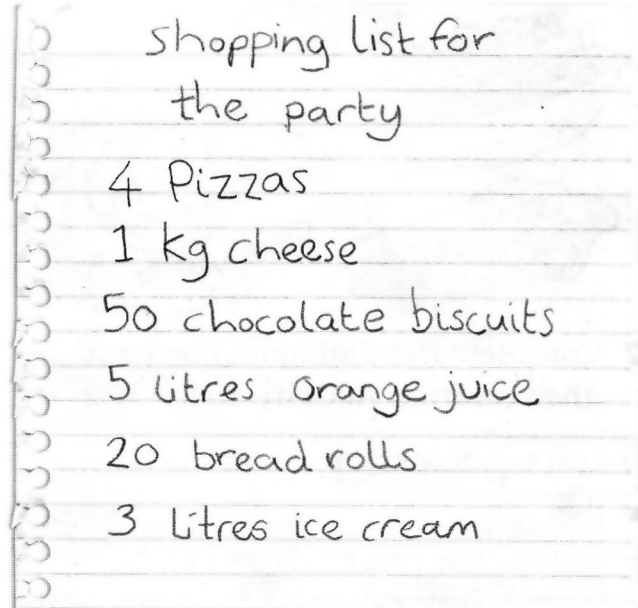 shopping list for
the party
4 Pizzas
1 kg cheese
50 chocolate biscuits
5 litres orange juice
20 bread rolls
3 Litres ice cream